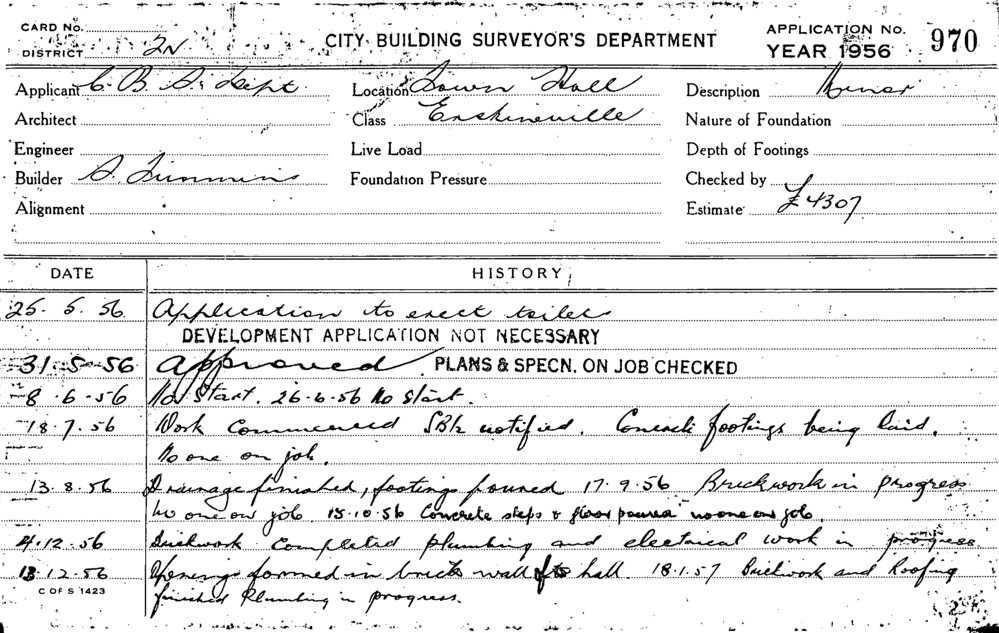 CARD No.
DISTRICT 2N
CITY BUILDING SURVEYOR'S DEPARTMENT
APPLICATION No. 970
YEAR 1956
Applicant C. B. S. Dept
Location Town Hall
Description Minor
Architect
Class Erskineville
Nature of Foundation
Engineer
Live Load
Depth of Footings
Builder S. Timmins
Foundation Pressure
Checked by
Alignment
Estimate £4307
DATE HISTORY
25. 5. 56 Application to erect toilet
DEVELOPMENT APPLICATION NOT NECESSARY
31-5-56 Approved. PLANS & SPECN. ON JOB CHECKED
8.6.56 No Start. 26-6-56 No Start.
18.7.56 Work Commenced notified. Concrete footings being laid.
No one on job.
13.8.56 Drainage finished, footings poured 17.9.56 Brickwork in progress
no one on job. 15.10.56 Concrete steps & floor poured no one on job.
4.12.56 Brickwork completed plumbing and electrical work in progress
13.12.56 Opening formed in brick wall to hall. 18.1.57 Brickwork and Roofing
C OF S 1423
finished Plumbing in progress.